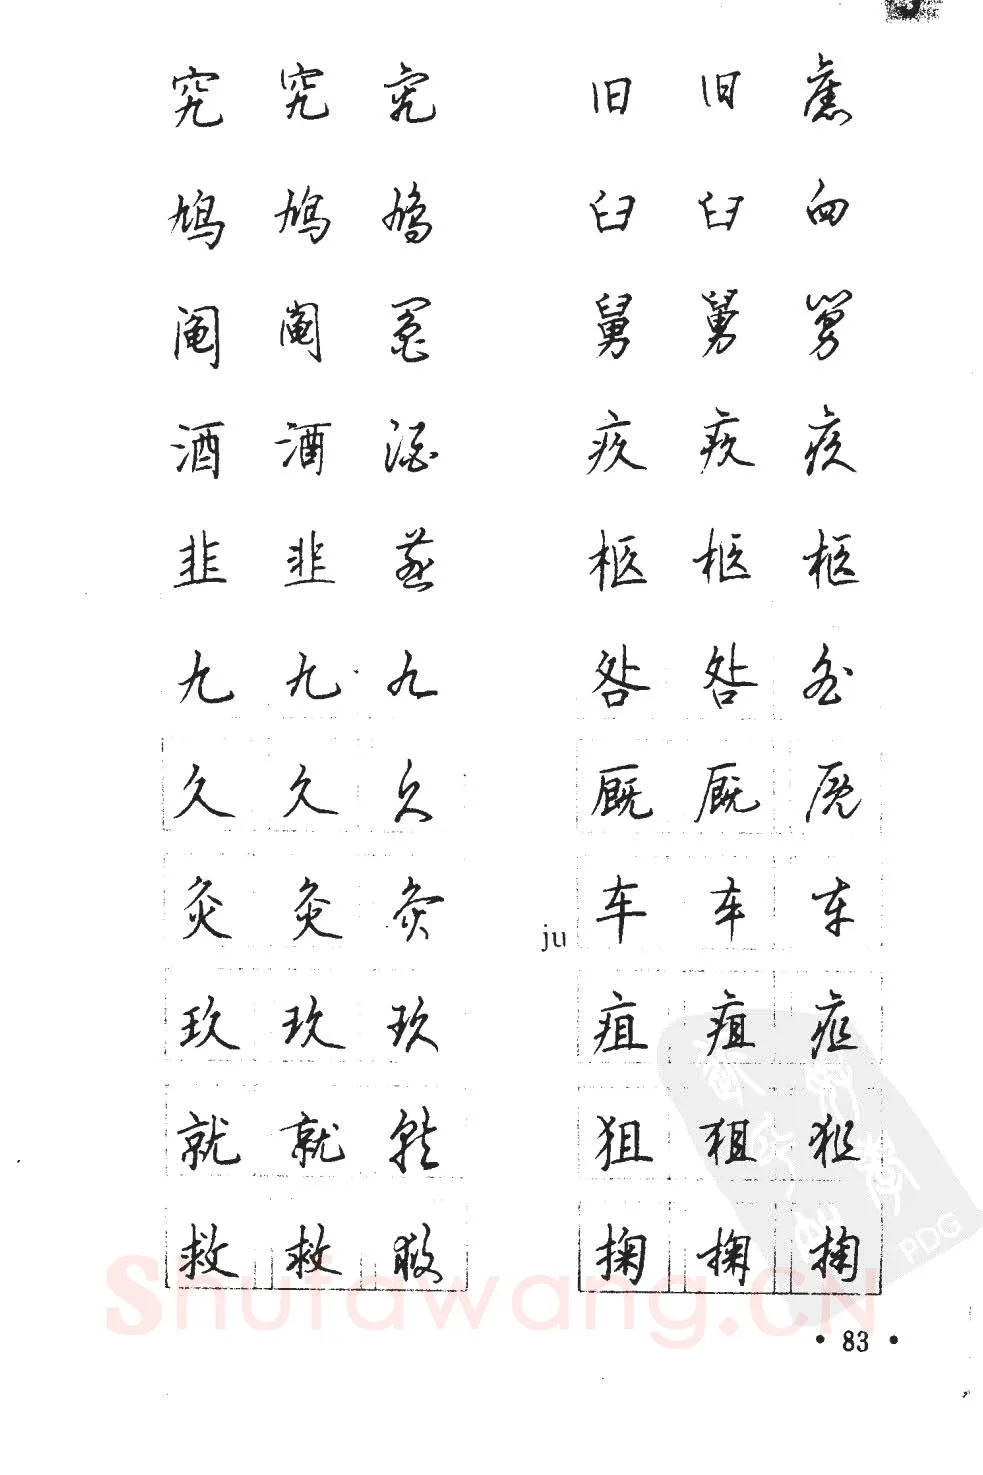 究 究 究 旧 旧 舊
鸠 鸠 鸠 臼 臼 臼
阄 阄 阄 舅 舅 舅
酒 酒 酒 疚 疚 疚
韭 韭 韭 柩 柩 柩
九 九 九 咎 咎 咎
久 久 久 厩 厩 厩
灸 灸 灸 ju 车 车 车
玖 玖 玖 疽 疽 疽
就 就 就 狙 狙 狙
救 救 救 掬 掬 掬
shufawang.CN
PDG
• 83 •